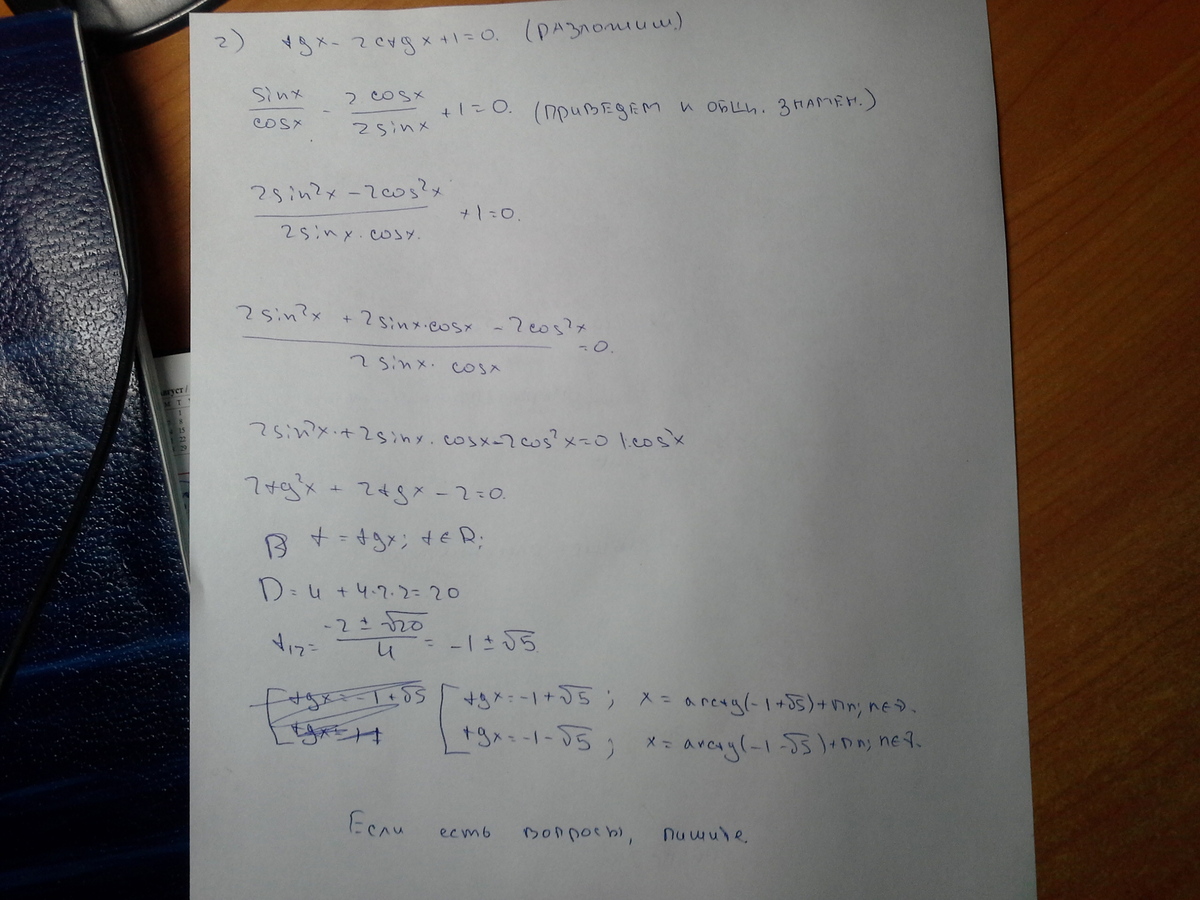 2) tgx - 2ctgx + 1 = 0. (разложим)
sinx/cosx - 2cosx/2sinx + 1 = 0. (приведем к общ. знамен.)
(2sin²x - 2cos²x)/(2sinx·cosx) + 1 = 0.
(2sin²x + 2sinx·cosx - 2cos²x)/(2sinx·cosx) = 0.
2sin²x + 2sinx·cosx - 2cos²x = 0 |:cos²x
2tg²x + 2tgx - 2 = 0.
t = tgx; t ∈ R;
D = 4 + 4·2·2 = 20
t₁₂ = (-2 ± √20)/4 = -1 ± √5
tgx = -1 + √5
tgx = -1 + √5; x = arctg(-1+√5) + πn; n∈Z.
tgx = -1 - √5; x = arctg(-1-√5) + πn; n∈Z.
Если есть вопросы, пишите.